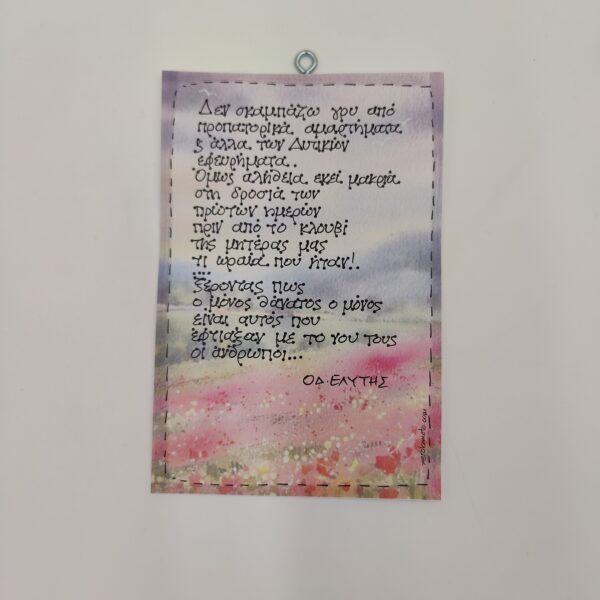 Δεν σκαμπάζω γρυ από
προπατορικά αμαρτήματα
ς άλλα των Δυτικών
εφευρήματα..
Όμως αλήθεια εκεί μακριά
στη δροσιά των
πρώτων ημερών
πριν από το κλουβί
της μητέρας μας
τι ωραία που ήταν!..
....
ξέροντας πως
ο μόνος θάνατος ο μόνος
είναι αυτός που
έφτιαξαν με το νου τους
οι άνθρωποι...
ΟΔ. ΕΛΥΤΗΣ